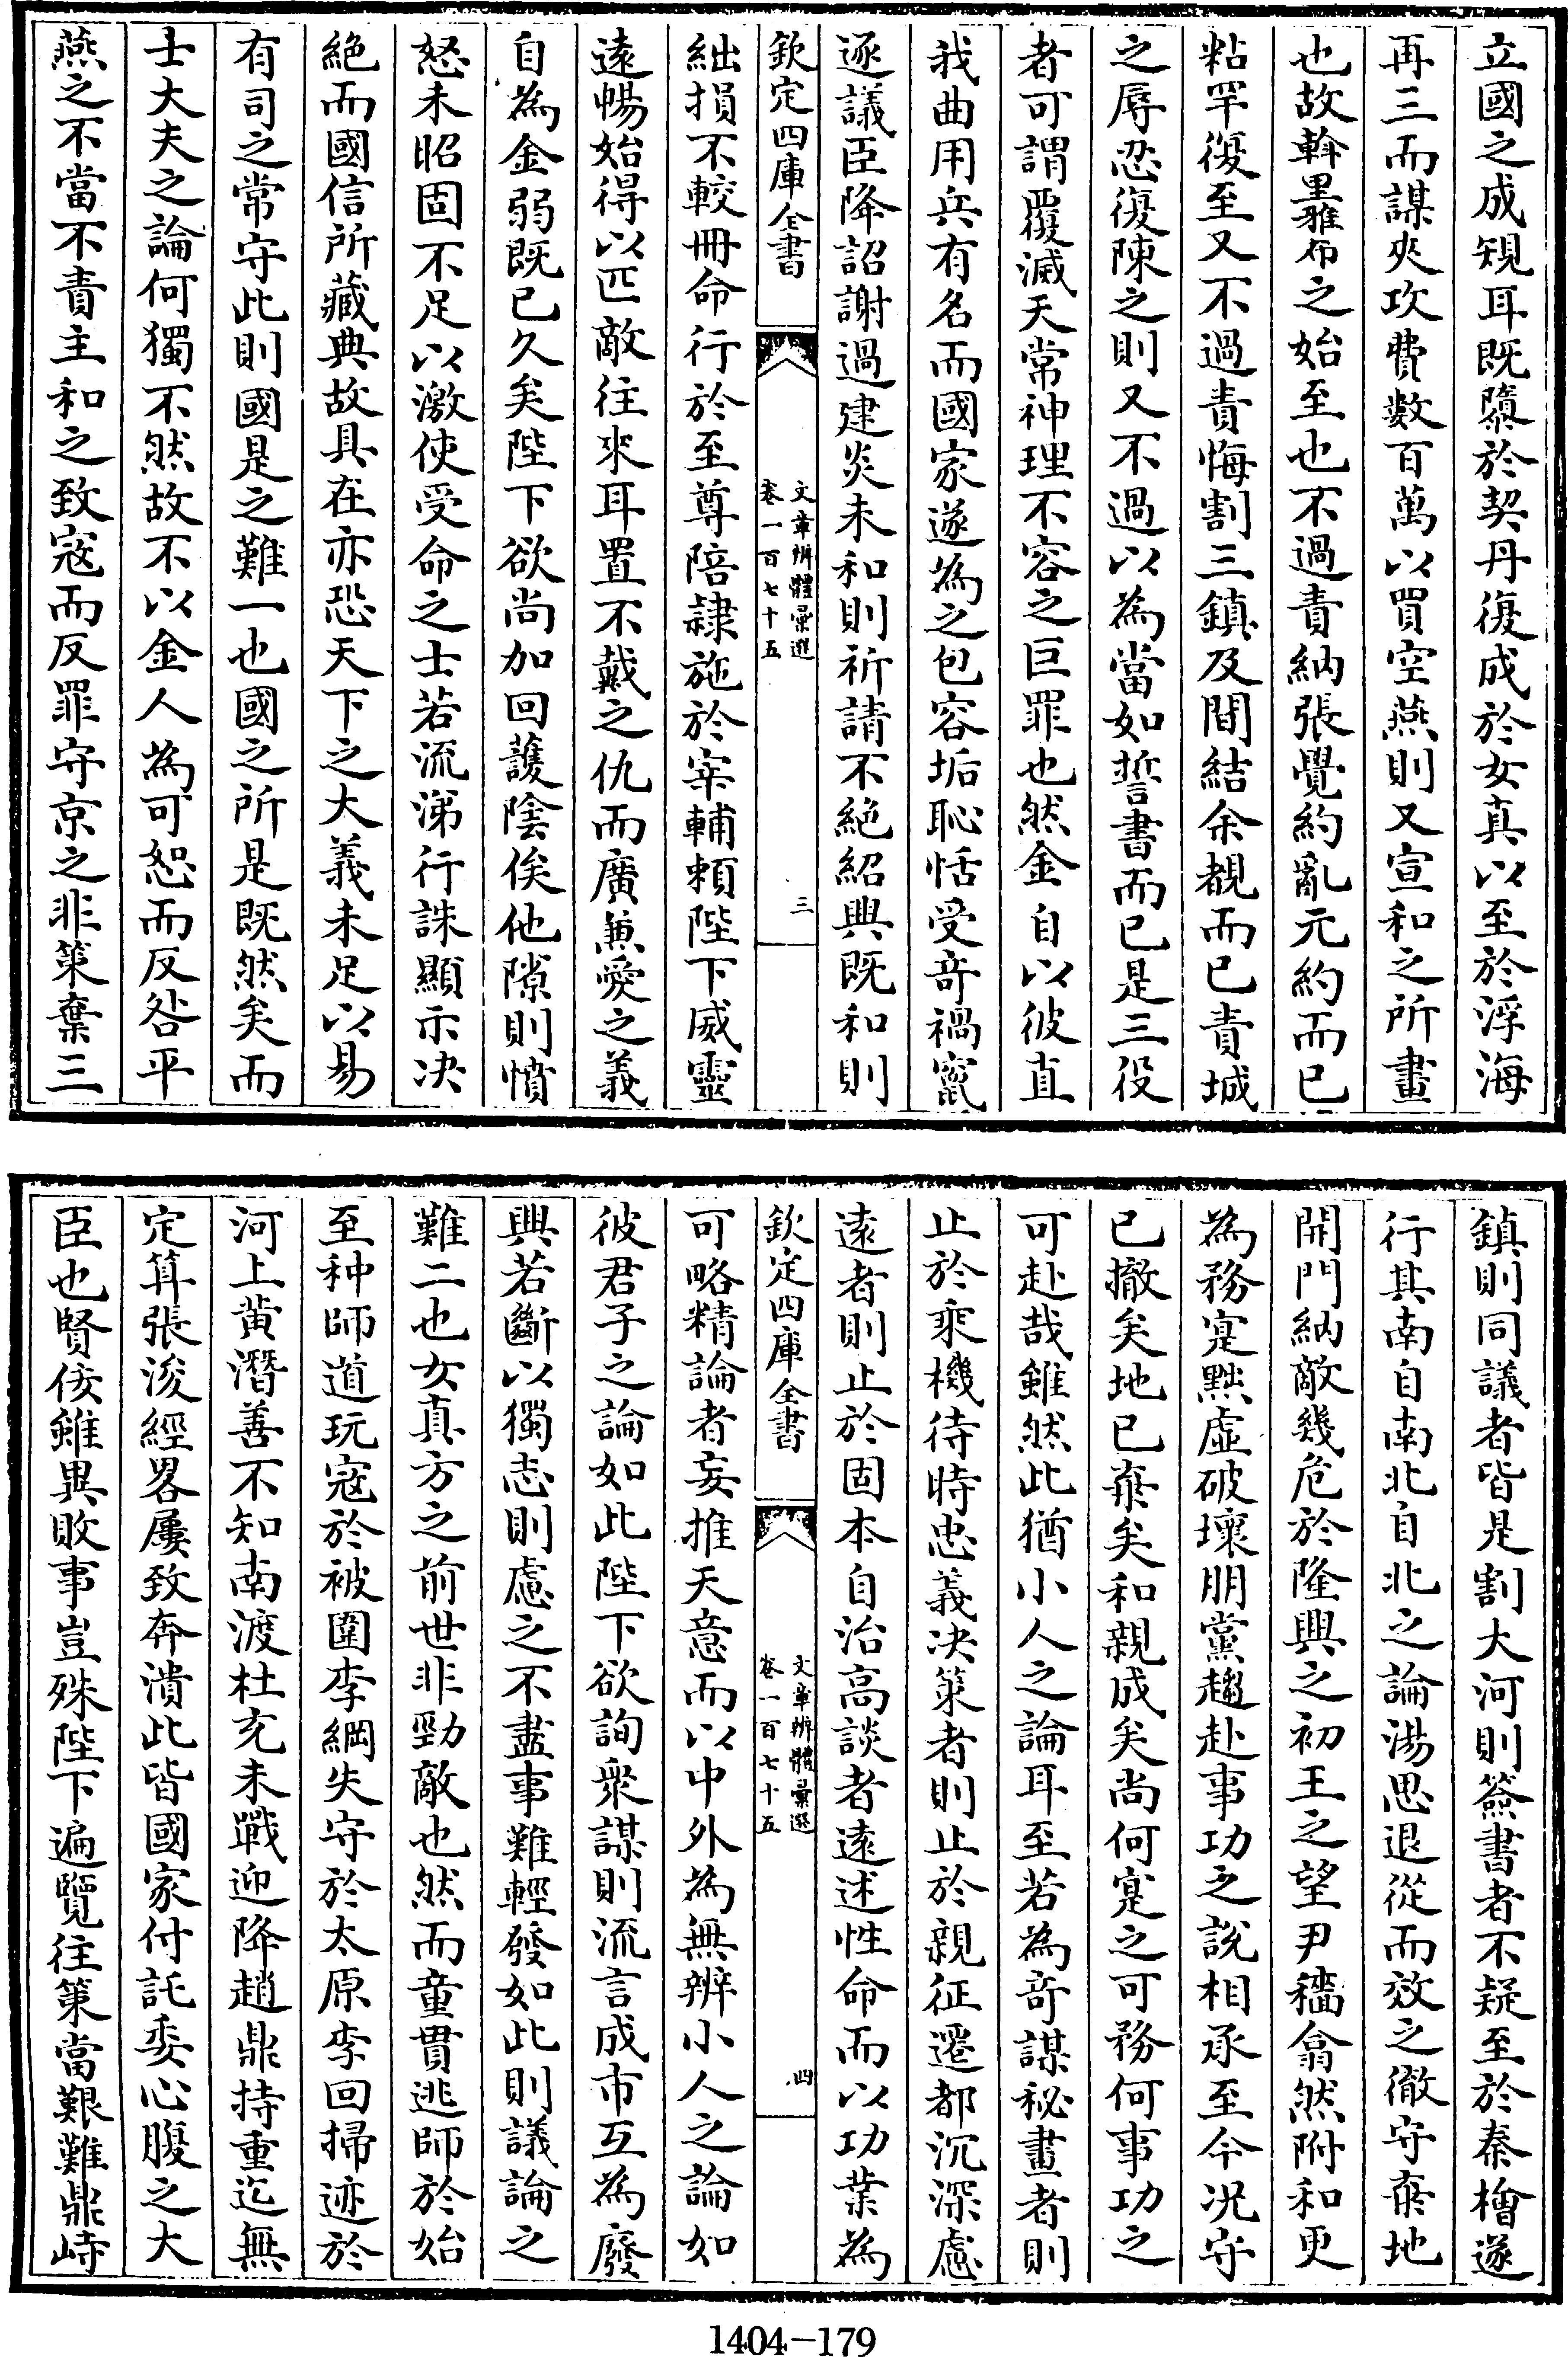 立國之成規耳既隳於契丹復成於女真以至於浮海
再三而謀夾攻費數百萬以買空燕則又宣和之所畫
也故斡里雅布之始至也不過責納張覺約亂元約而已
粘罕復至又不過責悔割三鎮及間結余覩而已責城
之辱忍復陳之則又不過以為當如誓書而已是三役
者可謂覆滅天常神理不容之巨罪也然金自以彼直
我曲用兵有名而國家遂為之包容垢恥恬受奇禍竄
逐議臣降詔謝過建炎未和則祈請不絕紹興既和則
欽定四庫全書
文章辨體彙選
卷一百七十五
三
絀損不較冊命行於至尊陪隸施於宰輔賴陛下威靈
遠暢始得以匹敵往來耳置不戴之仇而廣兼愛之義
自為金弱既已久矣陛下欲尚加回護陰俟他隙則憤
怒未昭固不足以激使受命之士若流涕行誅顯示决
絕而國信所藏典故具在亦恐天下之大義未足以易
有司之常守此則國是之難一也國之所是既然矣而
士大夫之論何獨不然故不以金人為可恕而反咎平
燕之不當不責主和之致寇而反罪守京之非策棄三
鎮則同議者皆是割大河則簽書者不疑至於秦檜遂
行其南自南北自北之論湯思退從而效之徹守棄地
開門納敵幾危於隆興之初王之望尹穡翕然附和更
為務寔黜虛破壞朋黨趨赴事功之說相承至今况守
已撤矣地已棄矣和親成矣尚何寔之可務何事功之
可赴哉雖然此猶小人之論耳至若為奇謀秘畫者則
止於乘機待時忠義决策者則止於親征遷都沉深慮
遠者則止於固本自治高談者遠述性命而以功業為
欽定四庫全書
文章辨體彙選
卷一百七十五
四
可略精論者妄推天意而以中外為無辨小人之論如
彼君子之論如此陛下欲詢衆謀則流言成市互為廢
興若斷以獨志則慮之不盡事難輕發如此則議論之
難二也女真方之前世非勁敵也然而童貫逃師於始
至种師道玩寇於被圍李綱失守於太原李回掃迹於
河上黄潛善不知南渡杜充未戰迎降趙鼎持重迄無
定算張浚經畧屢致奔潰此皆國家付託委心腹之大
臣也賢佞雖異敗事豈殊陛下遍覽往策當艱難鼎峙
1404-179